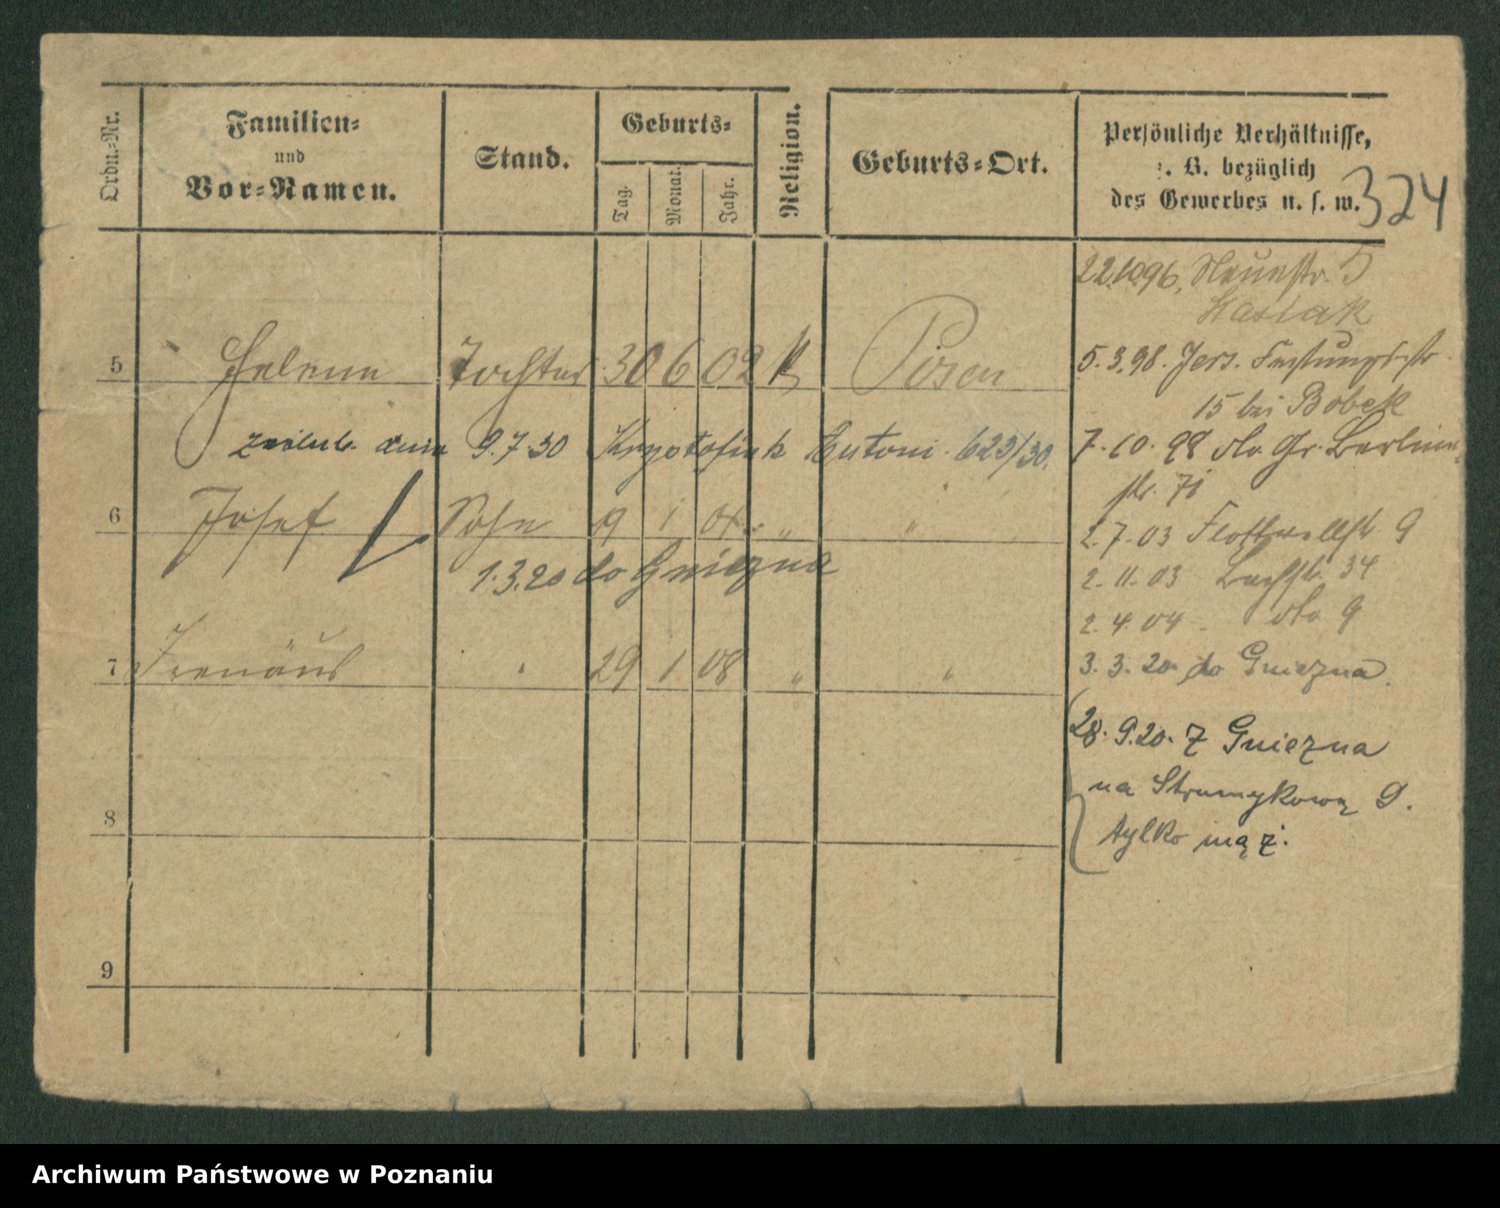 Ordn.-Nr.
Familien-
und
Vor-Namen.
Stand.
Geburts-
Tag.
Monat.
Jahr.
Religion.
Geburts-Ort.
Persönliche Verhältnisse,
z. B. bezüglich
des Gewerbes u. s. w.
324
22.10.96, Neuestr. 5
5 Helene Tochter 30 6 02 k Posen
5.3.98. Jers. Festungsstr.
15 bei Bobek
dnia 9.7.30 Antoni 623/30.
7.10.98 dto Gr. Berliner-
str. 71
6 Josef Sohn 19 1 04 " "
1.3.20 do Gniezna
2.7.03 Flottwellstr 9
2.11.03 Bachstr. 34
2.4.04 - dto 9
7 Irenäus " 29 1 08 " "
3.3.20 do Gniezna.
28.9.20. z Gniezna
na Strumykową 9.
tylko mąż.
8
9
Archiwum Państwowe w Poznaniu